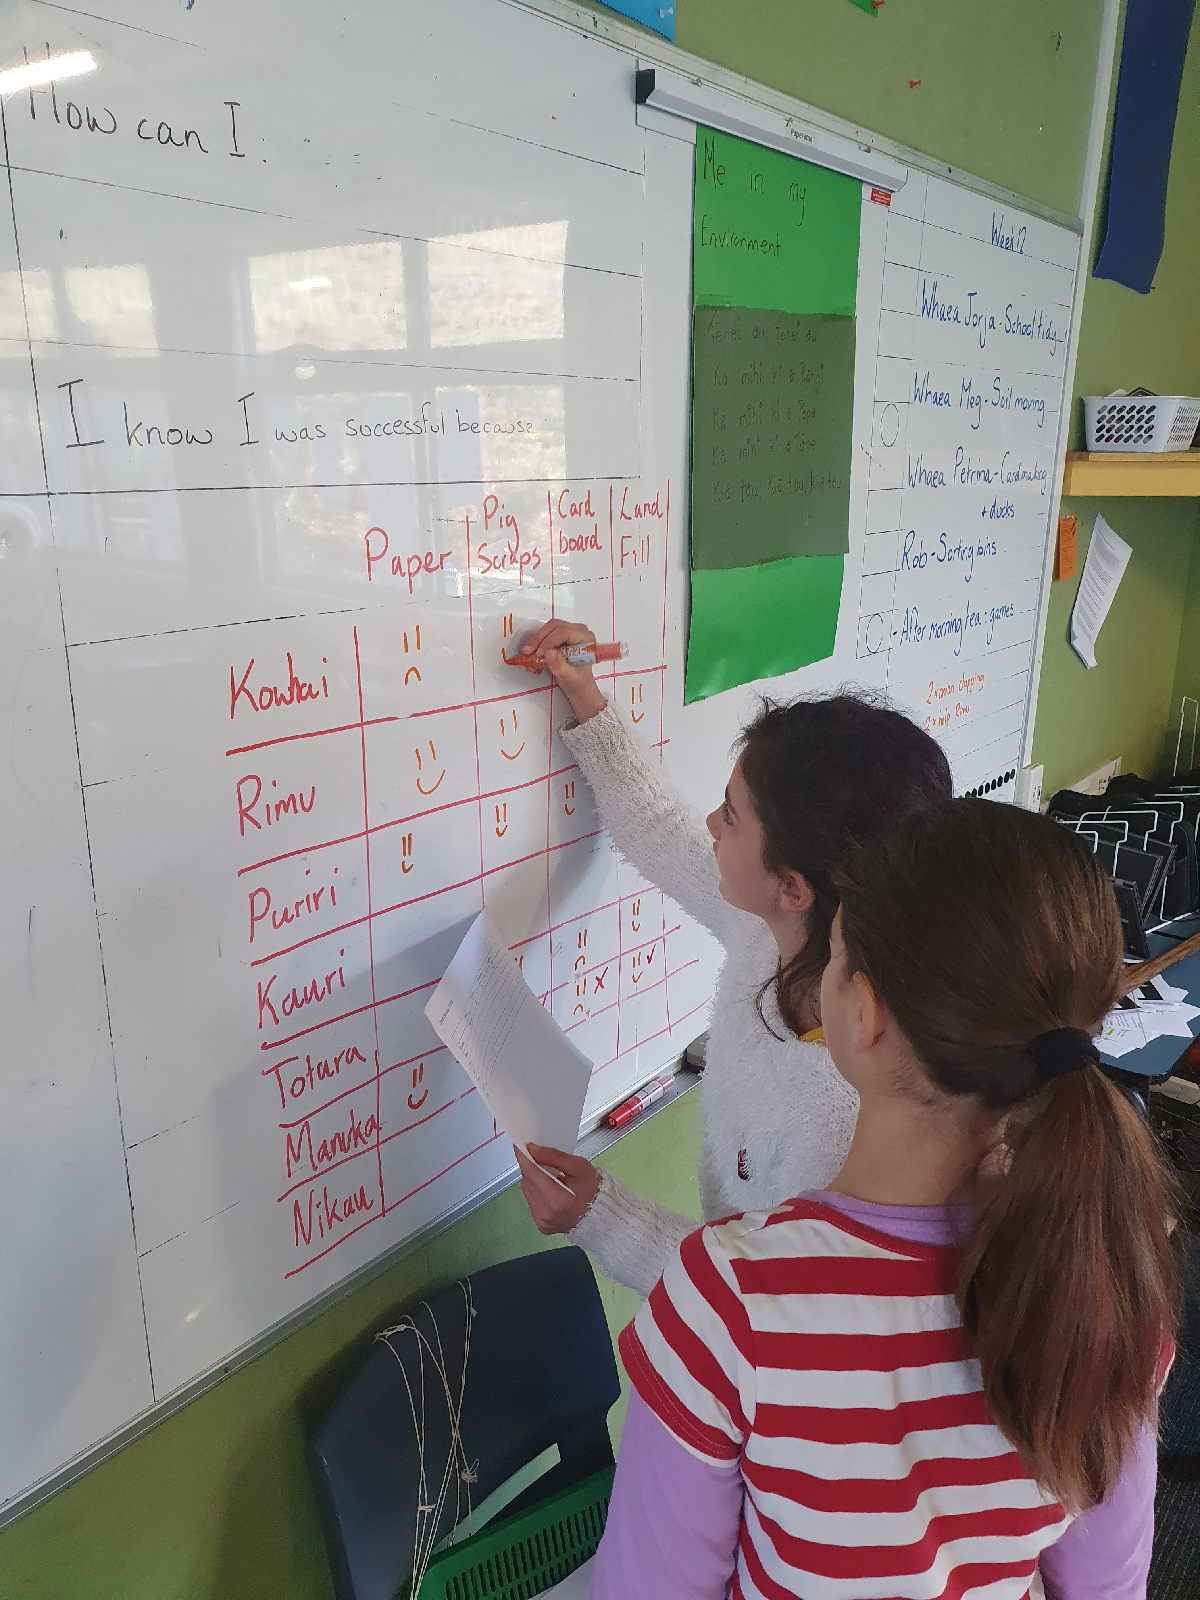 How can I:
I know I was successful because:
Paper
Pig
Scraps
Card
board
Land
Fill
Kowhai
Rimu
Puriri
Kauri
Totara
Manuka
Nikau
Me in my
Environment
Tēnei au, Tēnei au
Ka mihi ki a Rangi
Ka mihi ki a Papa
Ka mihi ki a Tāne
Kia tau, Kia tau, Kia tau
Week 12
Whaea Jorja - School tidy
Whaea Meg - Soil moving
Whaea Petrina - Cardmaking
+ ducks
Rob - Sorting bins
- After morning tea: games
help Rimu